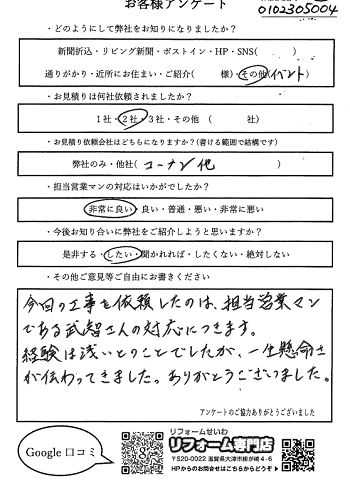 お客様アンケート
0102305004
・どのようにして弊社をお知りになりましたか?
新聞折込・リビング新聞・ポストイン・HP・SNS( )
通りがかり・近所にお住まい・ご紹介( 様)・その他(イベント)
・お見積りは何社依頼されましたか?
1社・2社・3社・その他 ( 社)
・お見積り依頼会社はどちらになりますか?(書ける範囲で結構です)
弊社のみ・他社( コーナン 他 )
・担当営業マンの対応はいかがでしたか?
非常に良い・良い・普通・悪い・非常に悪い
・今後お知り合いに弊社をご紹介しようと思いますか?
是非する・したい・聞かれれば・したくない・絶対しない
・その他ご意見等ご自由にお書きください
今回の工事を依頼したのは、担当営業マン
である武智さんの対応につきます。
経験は浅いとのことでしたが、一生懸命さ
が伝わってきました。ありがとうございました。
アンケートのご協力ありがとうございました
Google口コミ
リフォームせいわ
リフォーム専門店
〒520-0022 滋賀県大津市柳が崎4-6
HPからのお問合せはこちらからどうぞ